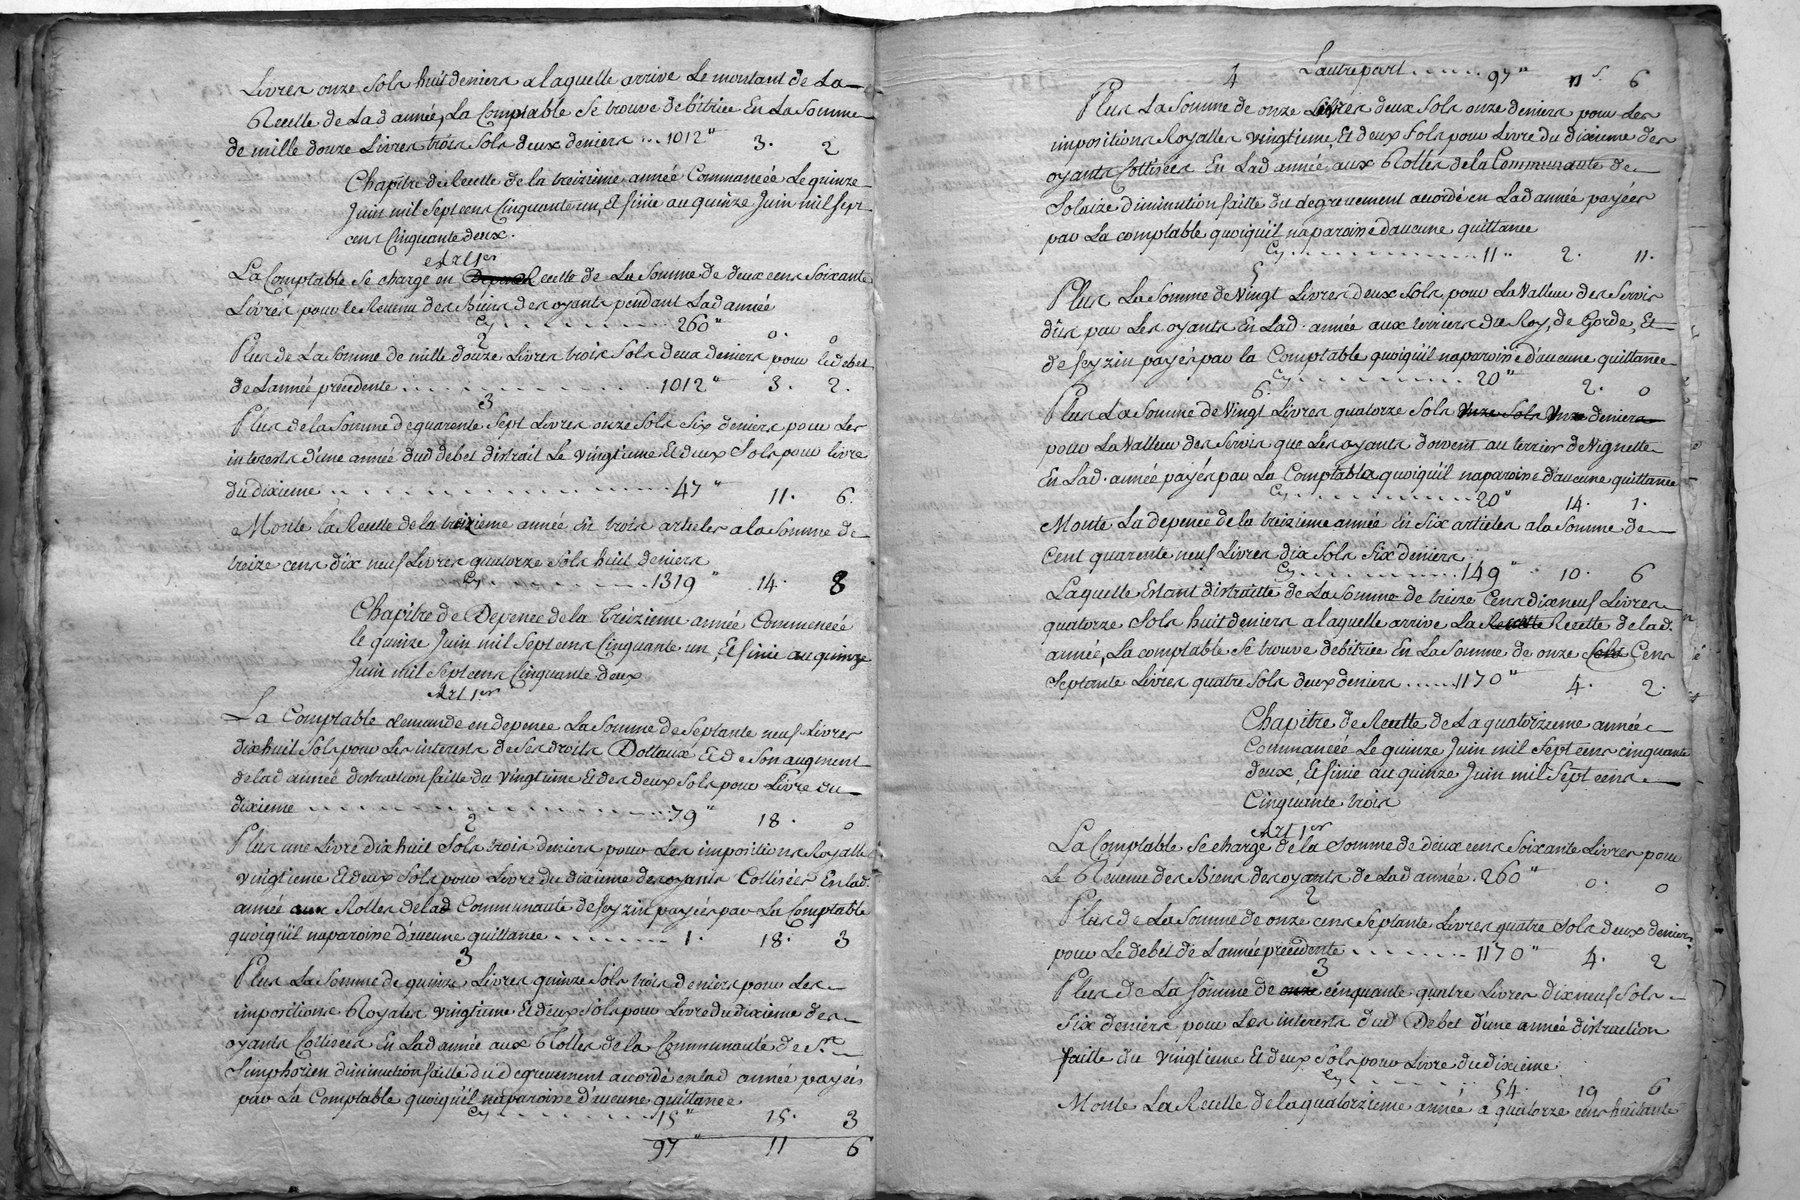 Livres onze sols huit deniers a laquelle arrive Le montant de La
Recette de Lad année, La Comptable Se trouve debitrice En La Somme
de mille douze Livres trois Sols deux deniers ... 1012" 3. 2
Chapitre de Recette de la treizieme année Commancéé Le quinze
Juin mil Sept cens Cinquante un, Et finie au quinze Juin mil sept
cens Cinquante deux.
Art 1er
La Comptable Se charge en Depence Recette de La Somme de deux cens Soixante
Livres pour le Revenu des Biens des oyants pendant Lad année
Cy ........ 260" 0. 0
2
Plus de La Somme de mille douze Livres trois Sols deux deniers pour le debet
de L'année precedente ........ 1012" 3. 2.
3
Plus de la Somme de quarente Sept Livres onze Sols Six deniers pour Les
interests d'une année dud debet distrait Le vingtieme Et deux Sols pour livre
du dixieme ........ 47" 11. 6.
Monte la Recette de la treizieme année En trois articles a la Somme de
treize cens dix neuf Livres quatorze Sols huit deniers
Cy ........ 1319" 14. 8
Chapitre de Depence de la Treizieme année Commencéé
le quinze Juin mil Sept cens Cinquante un, Et finie au quinze
Juin mil Sept cens Cinquante deux
Art 1er
La Comptable demande en depence La Somme de Septante neuf Livres
dix huit Sols pour Les interests de Ses droits Dottaux Et de Son augment
de lad année distraction faitte du vingtieme Et des deux Sols pour Livre du
dixieme ........ 79" 18. 0
2
Plus une Livre dix huit Sols trois deniers pour Les impositions Royalles
vingtieme Et deux Sols pour Livre du dixieme des oyants Cottisées En lad.
année aux Rolles de lad Communauté de feyzin payés par La Comptable
quoiqu'il naparoisse d'aucune quittance ........ 1. 18. 3
3
Plus La Somme de quinze Livres quinze Sols trois deniers pour Les
impositions Royales vingtieme Et deux Sols pour Livre du dixieme des
oyants Cottisées En Lad année aux Rolles de la Communauté de St
Simphorien diminution faitte du degrevement accordé en lad année payées
par La Comptable quoiqu'il naparoisse d'aucune quittance
Cy ........ 15" 15. 3
97" 11 6
L'autre part ...... 97" 11 s. 6
4
Plus La Somme de onze Livres deux Sols onze deniers pour Les
impositions Royalles vingtieme, Et deux Sols pour Livre du dixieme des
oyants Cottisées En Lad année aux Rolles de la Communauté de
Solaize diminution faitte du degrevement accordé en Lad année payées
par La comptable quoiqu'il naparoisse d'aucune quittance
Cy ........ 11" 2. 11.
5
Plus La Somme de Vingt Livres deux Sols, pour La Valleur des Servis
dûs par Les oyants En Lad. année aux terriers du Roy, de Gorde, Et
de feyzin payés par la Comptable quoiqu'il naparoisse d'aucune quittance
Cy ........ 20" 2. 0
6.
Plus La Somme de Vingt Livres quatorze Sols onze Sols une deniers
pour La Valleur des Servis que Les oyants doivent au terrier de Vignette
En Lad. année payés par La Comptable quoiqu'il naparoisse d'aucune quittance
Cy ........ 20" 14. 1.
Monte La depence de la treizieme année En Six articles a la Somme de
Cent quarente neuf Livres dix Sols Six deniers
Cy ........ 149" 10. 6
Laquelle Estant distraitte de La Somme de treize Cens dix neuf Livres
quatorze Sols huit deniers a laquelle arrive La Recette Recette de lad.
année, La comptable Se trouve debitrice En La Somme de onze Sols Cens
Septante Livres quatre Sols deux deniers ...... 1170" 4. 2.
Chapitre de Recette de La quatorzieme année
Commancéé Le quinze Juin mil Sept cens cinquante
deux, Et finie au quinze Juin mil Sept cens
Cinquante trois
Art 1er
La Comptable Se charge de la Somme de deux cens Soixante Livres pour
Le Revenu des Biens des oyants de Lad année. 260" 0. 0
2
Plus de La Somme de onze cens Septante Livres quatre Sols deux deniers
pour Le debet de L'année precedente ........ 1170" 4. 2
3
Plus de La Somme de onze cinquante quatre Livres dix neuf Sols
Six deniers pour Les interests dud Debet d'une année distraction
faitte du vingtieme Et deux Sols pour Livre du dixieme
Cy ........ 54. 19 6
Monte La Recette de la quatorzieme année a quatorze cens huitante